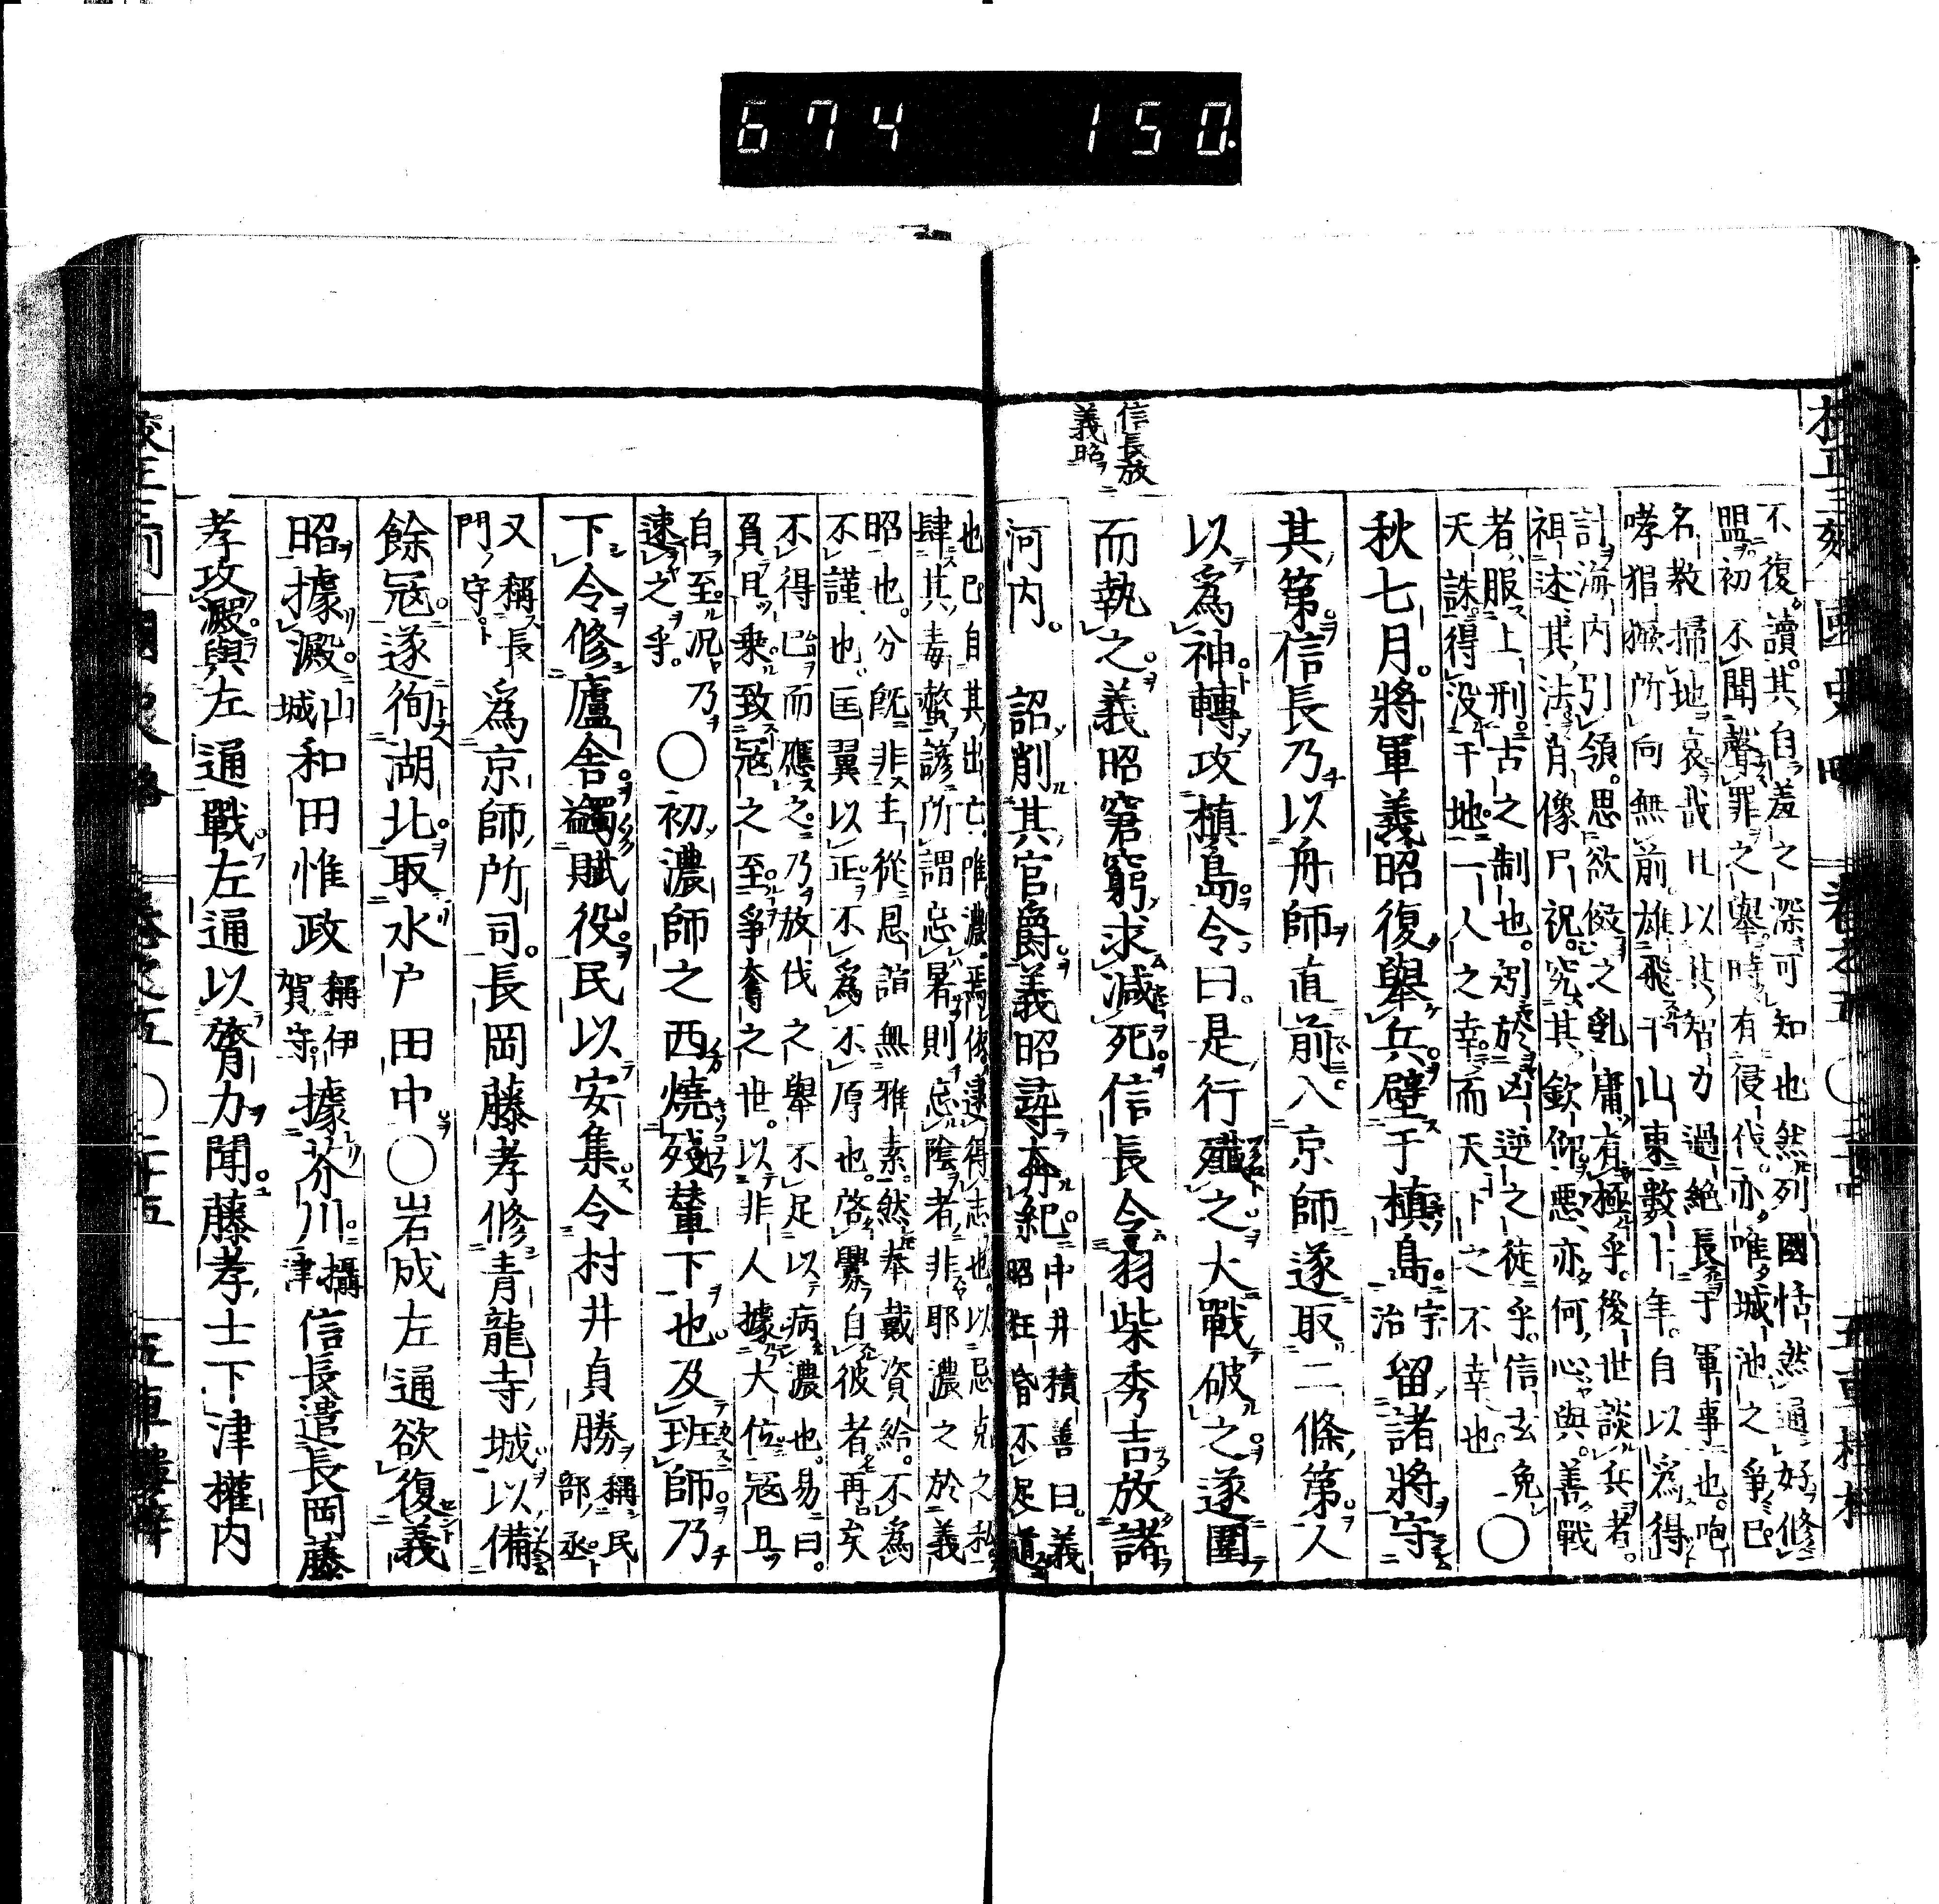 674 150.
信長放
義昭
不復讀其自羞之深可知也然列國恬然通好修
盟初不聞聲罪之舉時有侵伐亦唯城池之爭已
名教掃地哀哉且以其智力過絕長于軍事也咆
哮猖獗所向無前雄飛于山東數十年自以為得
計海内引領思欲儌之亂庸有極乎後世談兵者
祖述其法肖像尸祝究其欽仰惡亦何心與善戰
者服上刑古之制也矧於凶逆之徒乎信玄免
天誅得没于地一人之幸而天下之不幸也〇
秋七月將軍義昭復舉兵壁于槙島宇治留諸將守
其第信長乃以舟師直前入京師遂取二條第人
以為神轉攻槙島令曰是行殲之大戰破之遂圍
而執之義昭窘窮求減死信長令羽柴秀吉放諸
河内 詔削其官爵義昭尋奔紀中井積善曰義
昭狂昏不足道
也已自其出亡唯濃焉依逮得志也以忌克之私
肆其毒螫諺所謂忘暑則忘陰者非耶濃之於義
昭也分既非主從恩詣無雅素然奉戴資給不為
不謹也匡翼以正不為不厚也啓釁自彼者再矣
不得已而應之乃放伐之舉不足以病濃也易曰
負且乗致冦之至爭奪之世以非人據大位冦且
自至况乃
速之乎〇初濃師之西燒殘輦下也及班師乃
下令修廬舍蠲賦役民以安集令村井貞勝稱民部丞
又稱長
門守為京師所司長岡藤孝修青龍寺城以備
餘冦遂徇湖北取水戸田中〇岩成左通欲復義
昭據澱山城和田惟政稱伊賀守據芥川攝津信長遣長岡藤
孝攻澱與左通戰左通以膂力聞藤孝士下津權内